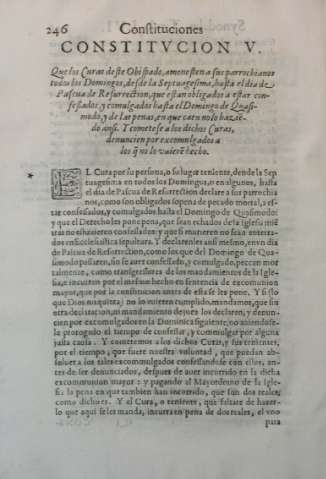 246 Constituciones
CONSTITVCION V.
Que los Curas deste Obispado, amonesten a sus parrochianos
todos los Domingos, desde la Septuagesima, hasta el dia de
Pascua de Resurrection, que estan obligados a estar con-
fessados, y comulgados hasta el Domingo de Quasi-
modo, y de las penas, en que caen no lo hazie-
do ansi. Y cometese a los dichos Curas,
denuncien por excomulgados a
los q̃ no lo vuierẽ hecho.
EL Cura por su persona, o su lugar teniente, desde la Sep
tuagesima en todos los Domingos, o en algunos, hasta
el dia de Pascua de Resurrection declare a sus parrochia
nos, como son obligados so pena de pecado mortal, a es-
tar confessados, y comulgados hasta el Domingo de Quasimodo: y
que el Derecho les pone pena, que sean echados de la Iglesia mie
tras no estuuieren confessados: y que si murieren no sean enterra-
dos en Ecclesiastica sepultura. Y declarenles ansi mesmo, en vn dia
de Pascua de Resurrection, como los que del Domingo de Qua-
simodo passaren, sin se auer confessado, y comulgado, peccan mor
talmente, como transgressores de los mandamientos de la Igle-
sia, e incurren por el mesmo hecho en sentencia de excomunion
mayor, que por la constitucion antes de esta se les pone. Y si (lo
que Dios no quiera) no lo vuieren cumplido, mandamos, que sin
otra declaracion, ni mandamiento de juez los declaren, y denun-
cien por excomulgados en la Dominica siguiente, no auiendose-
le prorogado el tiempo de confessar, y commulgar por alguna
justa causa. Y cometemos a los dichos Curas, y sus tenientes,
por el tiempo, que fuere nuestra voluntad, que puedan ab-
soluer a los tales excomulgados confessandose con ellos, an-
tes de ser denunciados, despues de auer incurrido en la dicha
excommunion mayor: y pagando al Mayordomo de la Igle-
sia la pena en que tambien han incurrido, que son dos reales;
como dicho es. Y el Cura, o teniente, que faltare de hazer-
lo que aqui se les manda, incurra en pena de dos reales, el vno
para